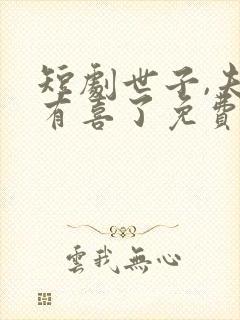 短劇世子,夫
有喜了免費
雲我無心